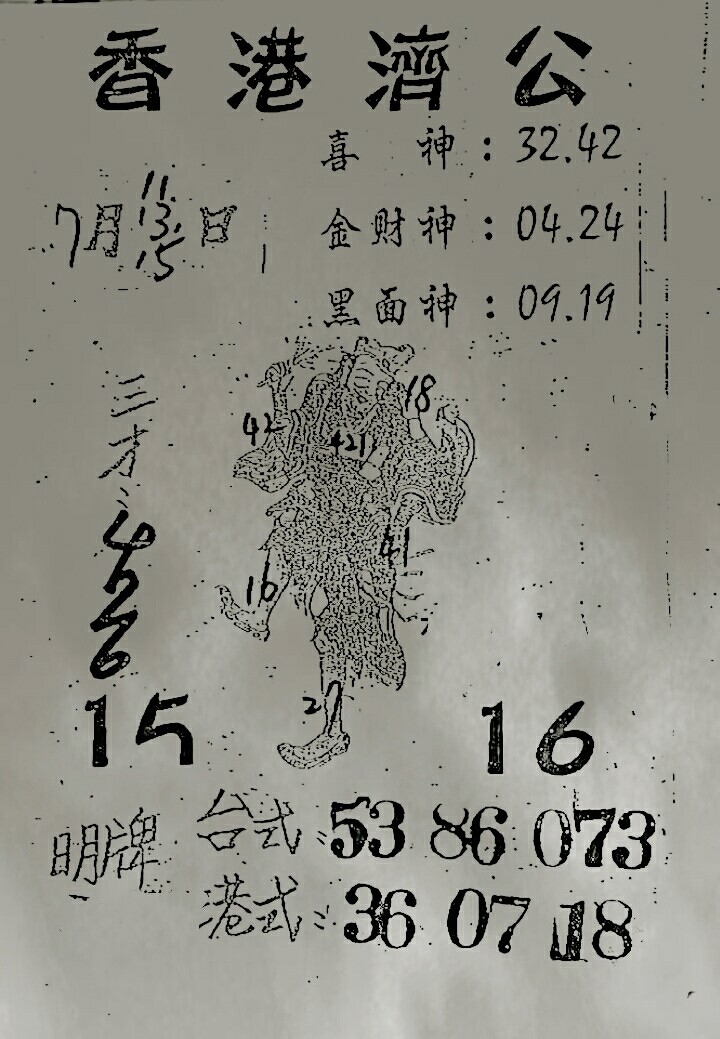 香港濟公
喜神：32.42
7月11.13.15日
金财神：04.24
黑面神：09.19
三才：456
18
42
421
41
16
27
15 16
明牌：
台式：53 86 073
港式：36 07 18